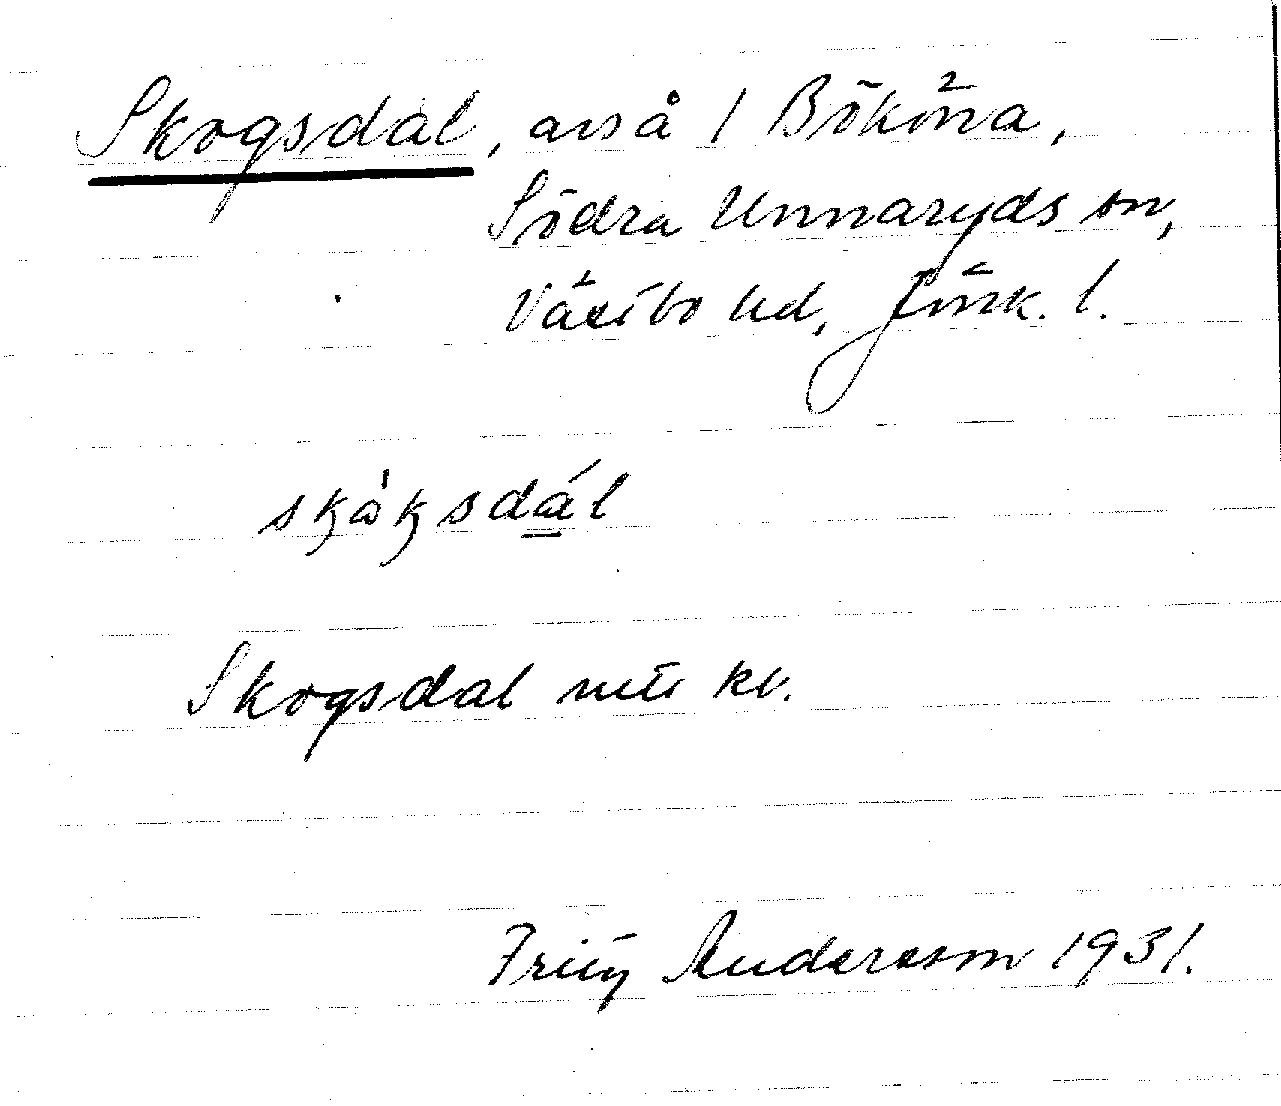 Skogsdal, avs å 1 Bököna,
Södra Unnaryds sn,
Västbo hd, Jönk. l.
skåksdál
Skogsdal utt. kv.
Fritz Andersson 1931.